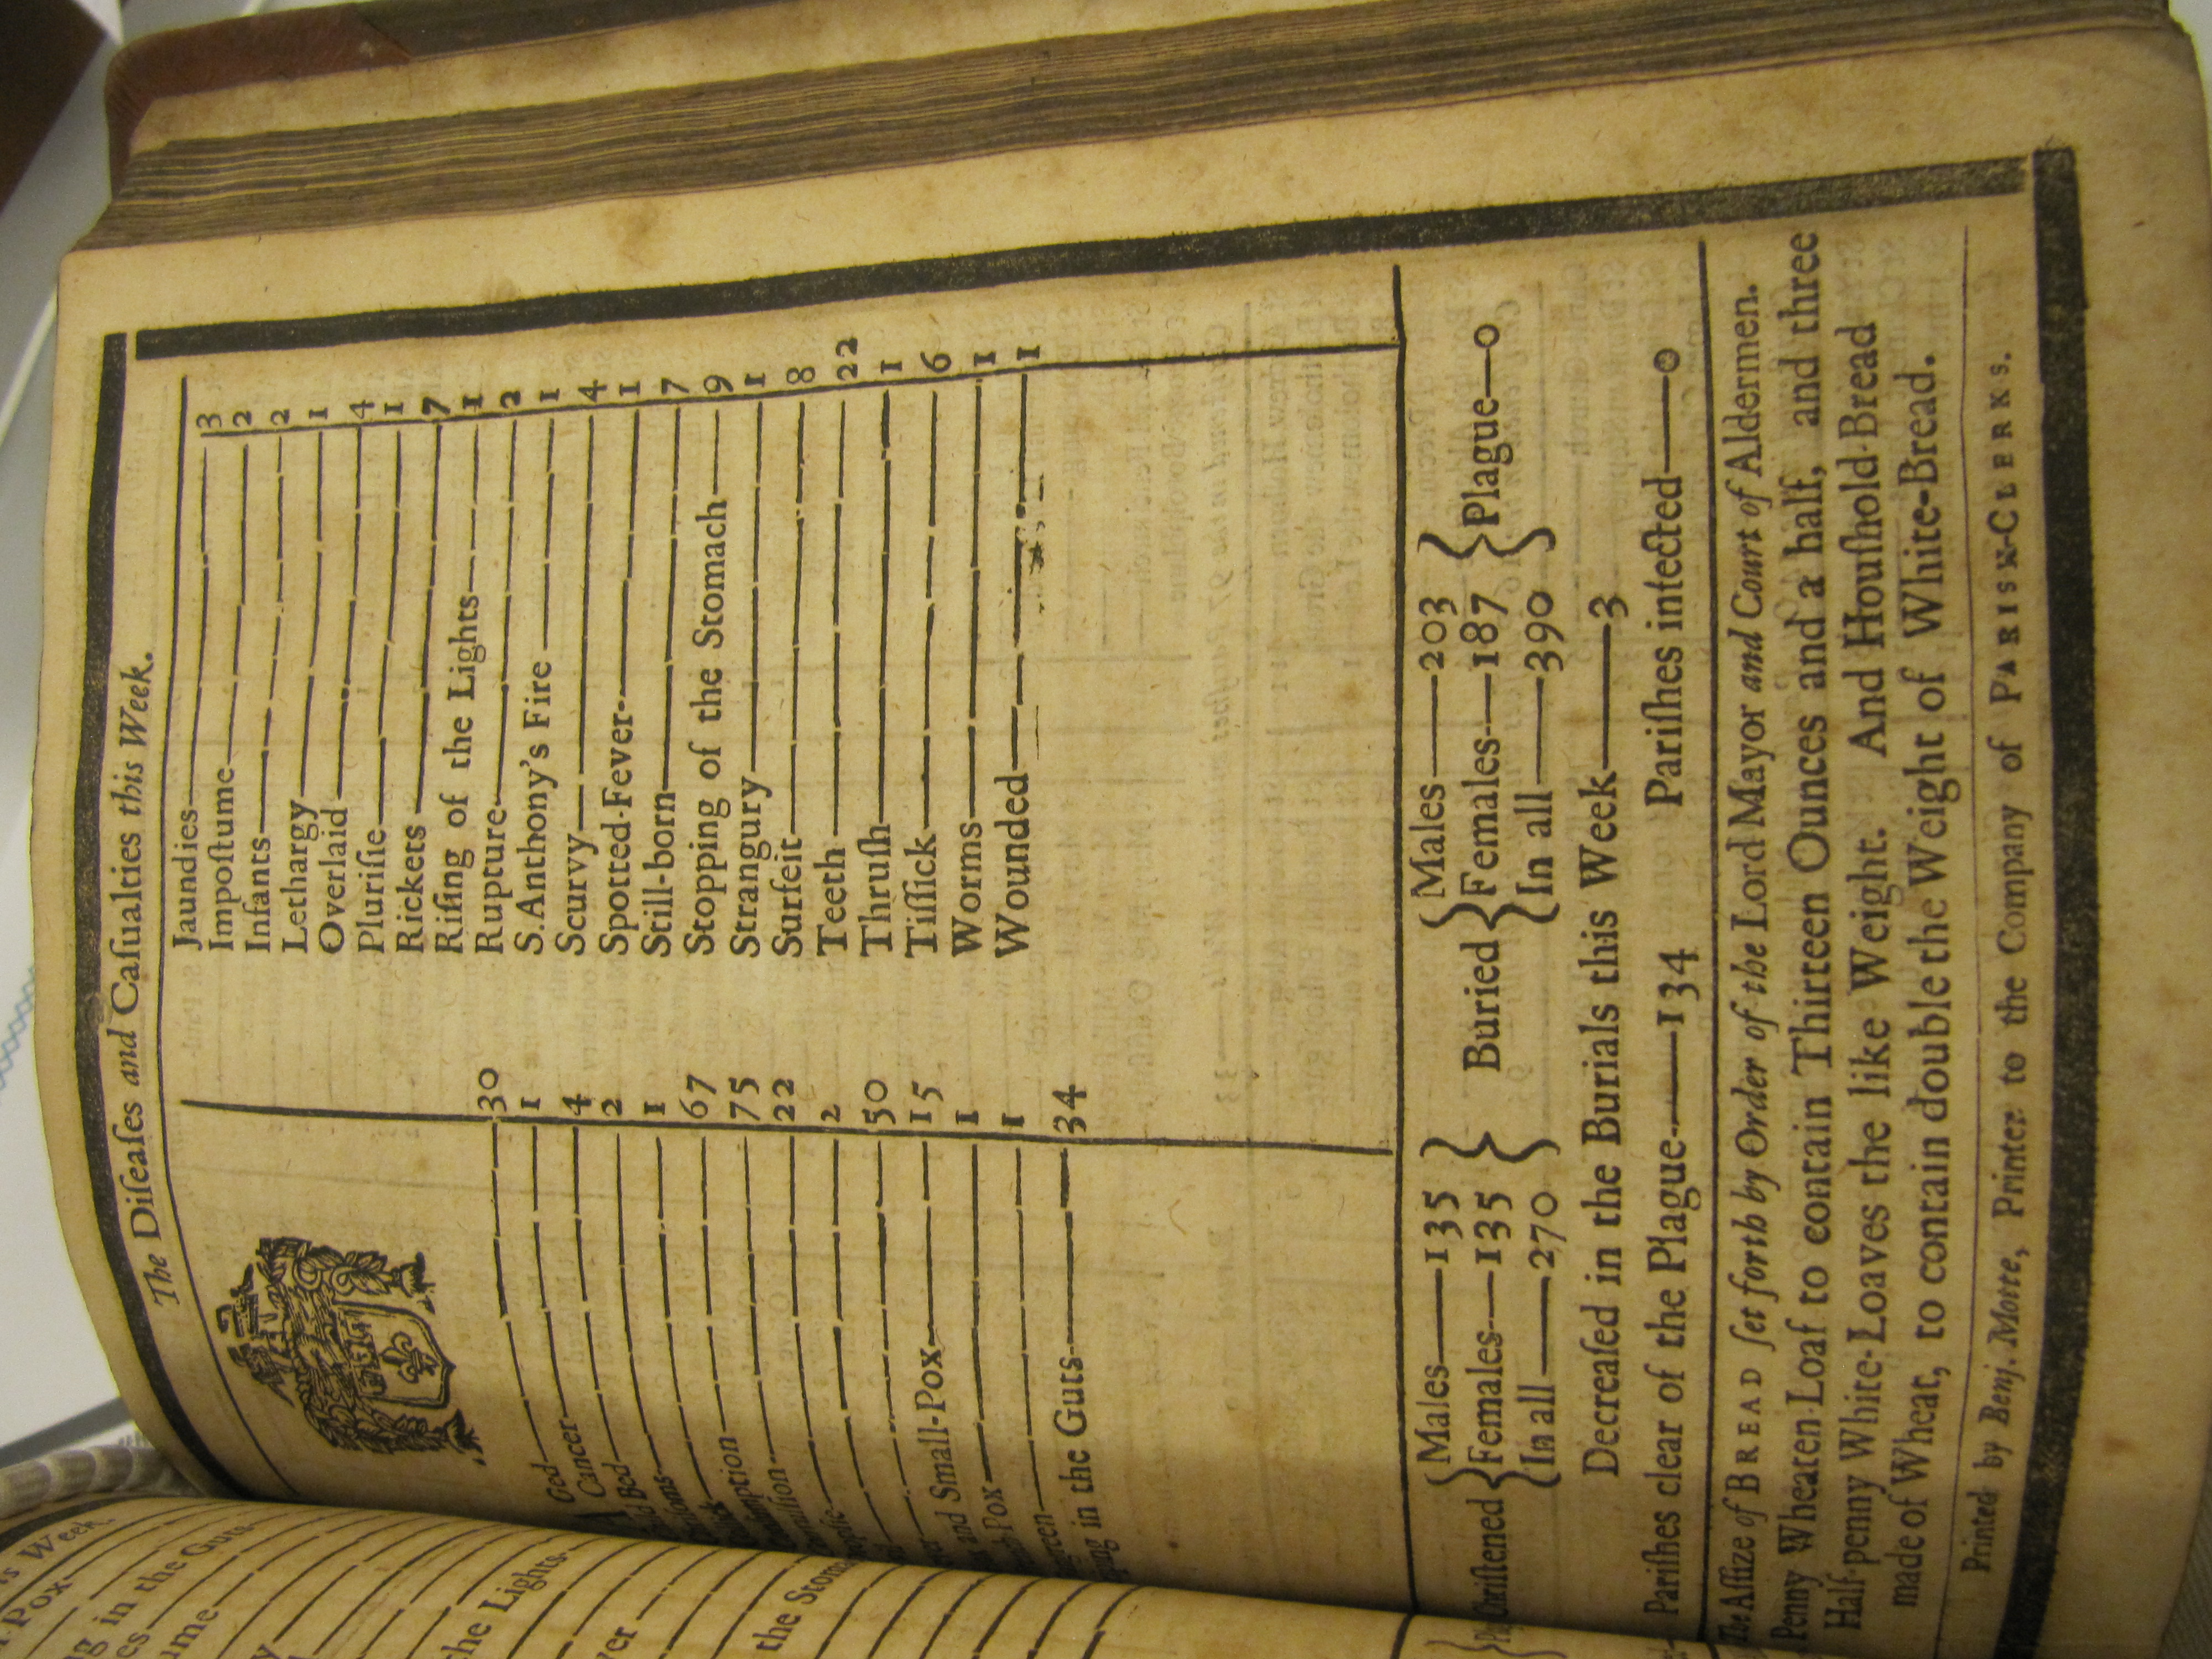 The Diſeaſes and Caſualties this Week.
Ged — 30
Cancer — 1
Bed — 4
2
1
67
75
22
2
50
and Small-Pox — 15
Pox — 1
1
in the Guts — 34
Jaundies — 3
Impoſtume — 2
Infants — 2
Lethargy — 1
Overlaid — 4
Pluriſie — 1
Rickets — 7
Riſing of the Lights — 1
Rupture — 2
S. Anthony's Fire — 1
Scurvy — 4
Spotted-Fever — 1
Still-born — 7
Stopping of the Stomach — 9
Strangury — 1
Surfeit — 8
Teeth — 22
Thruſh — 1
Tiſſick — 6
Worms — 1
Wounded — 1
Chriſtened { Males — 135 Females — 135 In all — 270 }
Buried { Males — 203 Females — 187 In all — 390 } Plague — 0
Decreaſed in the Burials this Week — 3
Pariſhes clear of the Plague — 134 Pariſhes infected — 0
The Aſſize of BREAD ſet forth by Order of the Lord Mayor and Court of Aldermen.
Penny Wheaten-Loaf to contain Thirteen Ounces and a half, and three
Half-penny White-Loaves the like Weight. And Houſhold-Bread
made of Wheat, to contain double the Weight of White-Bread.
Printed by Benj. Motte, Printer to the Company of PARISH-CLERKS.
Week.
Pox
in the Guts
the Lights
the Stom